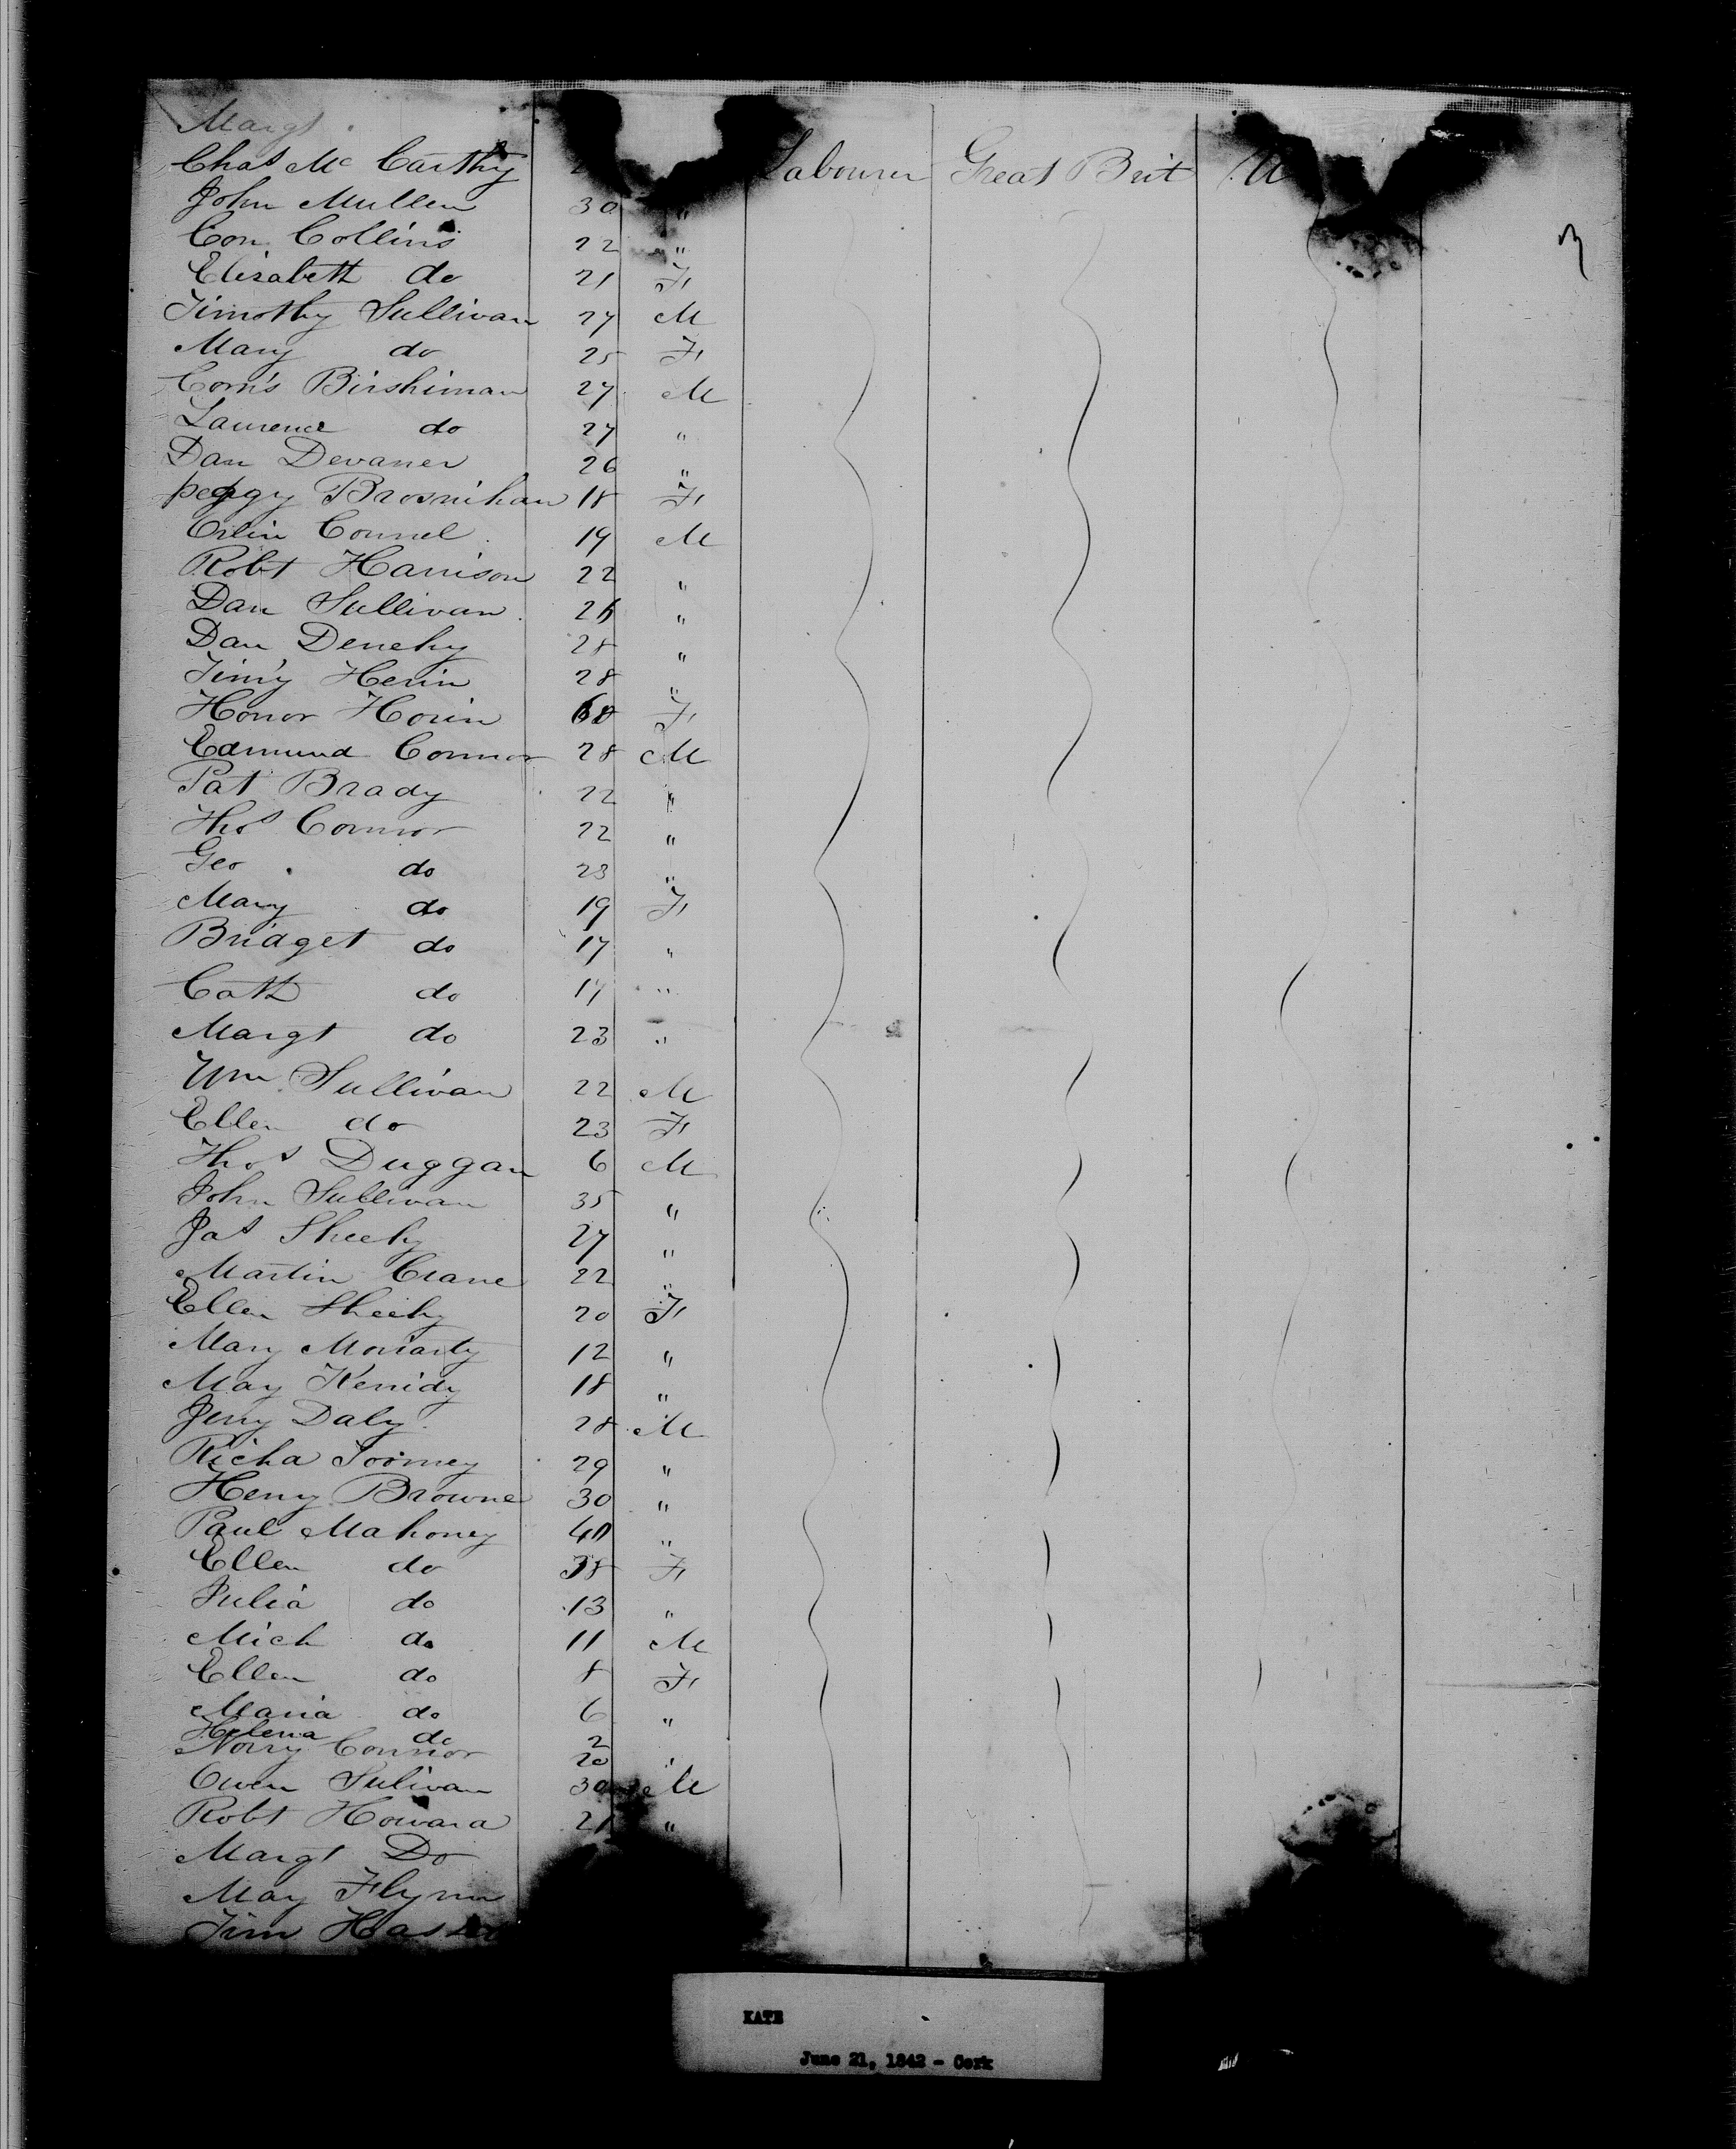 Margt
Chas Mc Carthy Labourer Great Brit U
John Mullen 30 "
Con Collins 22 "
Elisabeth do 21 F
Timothy Sullivan 27 M
Mary do 25 F
Corn's Birshiman 27 M
Laurence do 27 "
Dan Devaner 26 "
peggy Brosnihan 18 F
Orlin Connel 19 M
Robt Harrison 22 "
Dan Sullivan 26 "
Dan Denehy 28 "
Tim'y Herin 28 "
Honor Horin F
Edmund Connor 28 M
Pat Brady 22 "
Thos Connor 22 "
Geo do 23 "
Mary do 19 F
Bridget do 17 "
Cath do 17 "
Margt do 23 "
Wm Sullivan 22 M
Ellen do 23 F
Thos Duggan 6 M
John Sullivan 35 "
Jas Sheehy 27 "
Martin Crane 22 "
Ellen Sheehy 20 F
Mary Moriarty 12 "
May Kenidy 18 "
Jerry Daly 28 M
Richd Toomey 29 "
Henry Browne 30 "
Paul Mahoney 40 "
Ellen do 38 F
Julia do 13 "
Mich do 11 M
Ellen do 8 F
Maria do 6 "
Helena do 2
Norry Connor 20 "
Owen Sulivan 30 M
Robt Howard 21 "
Margt Do
May Flynn
Tim
3
KATE
June 21, 1842 - Cork